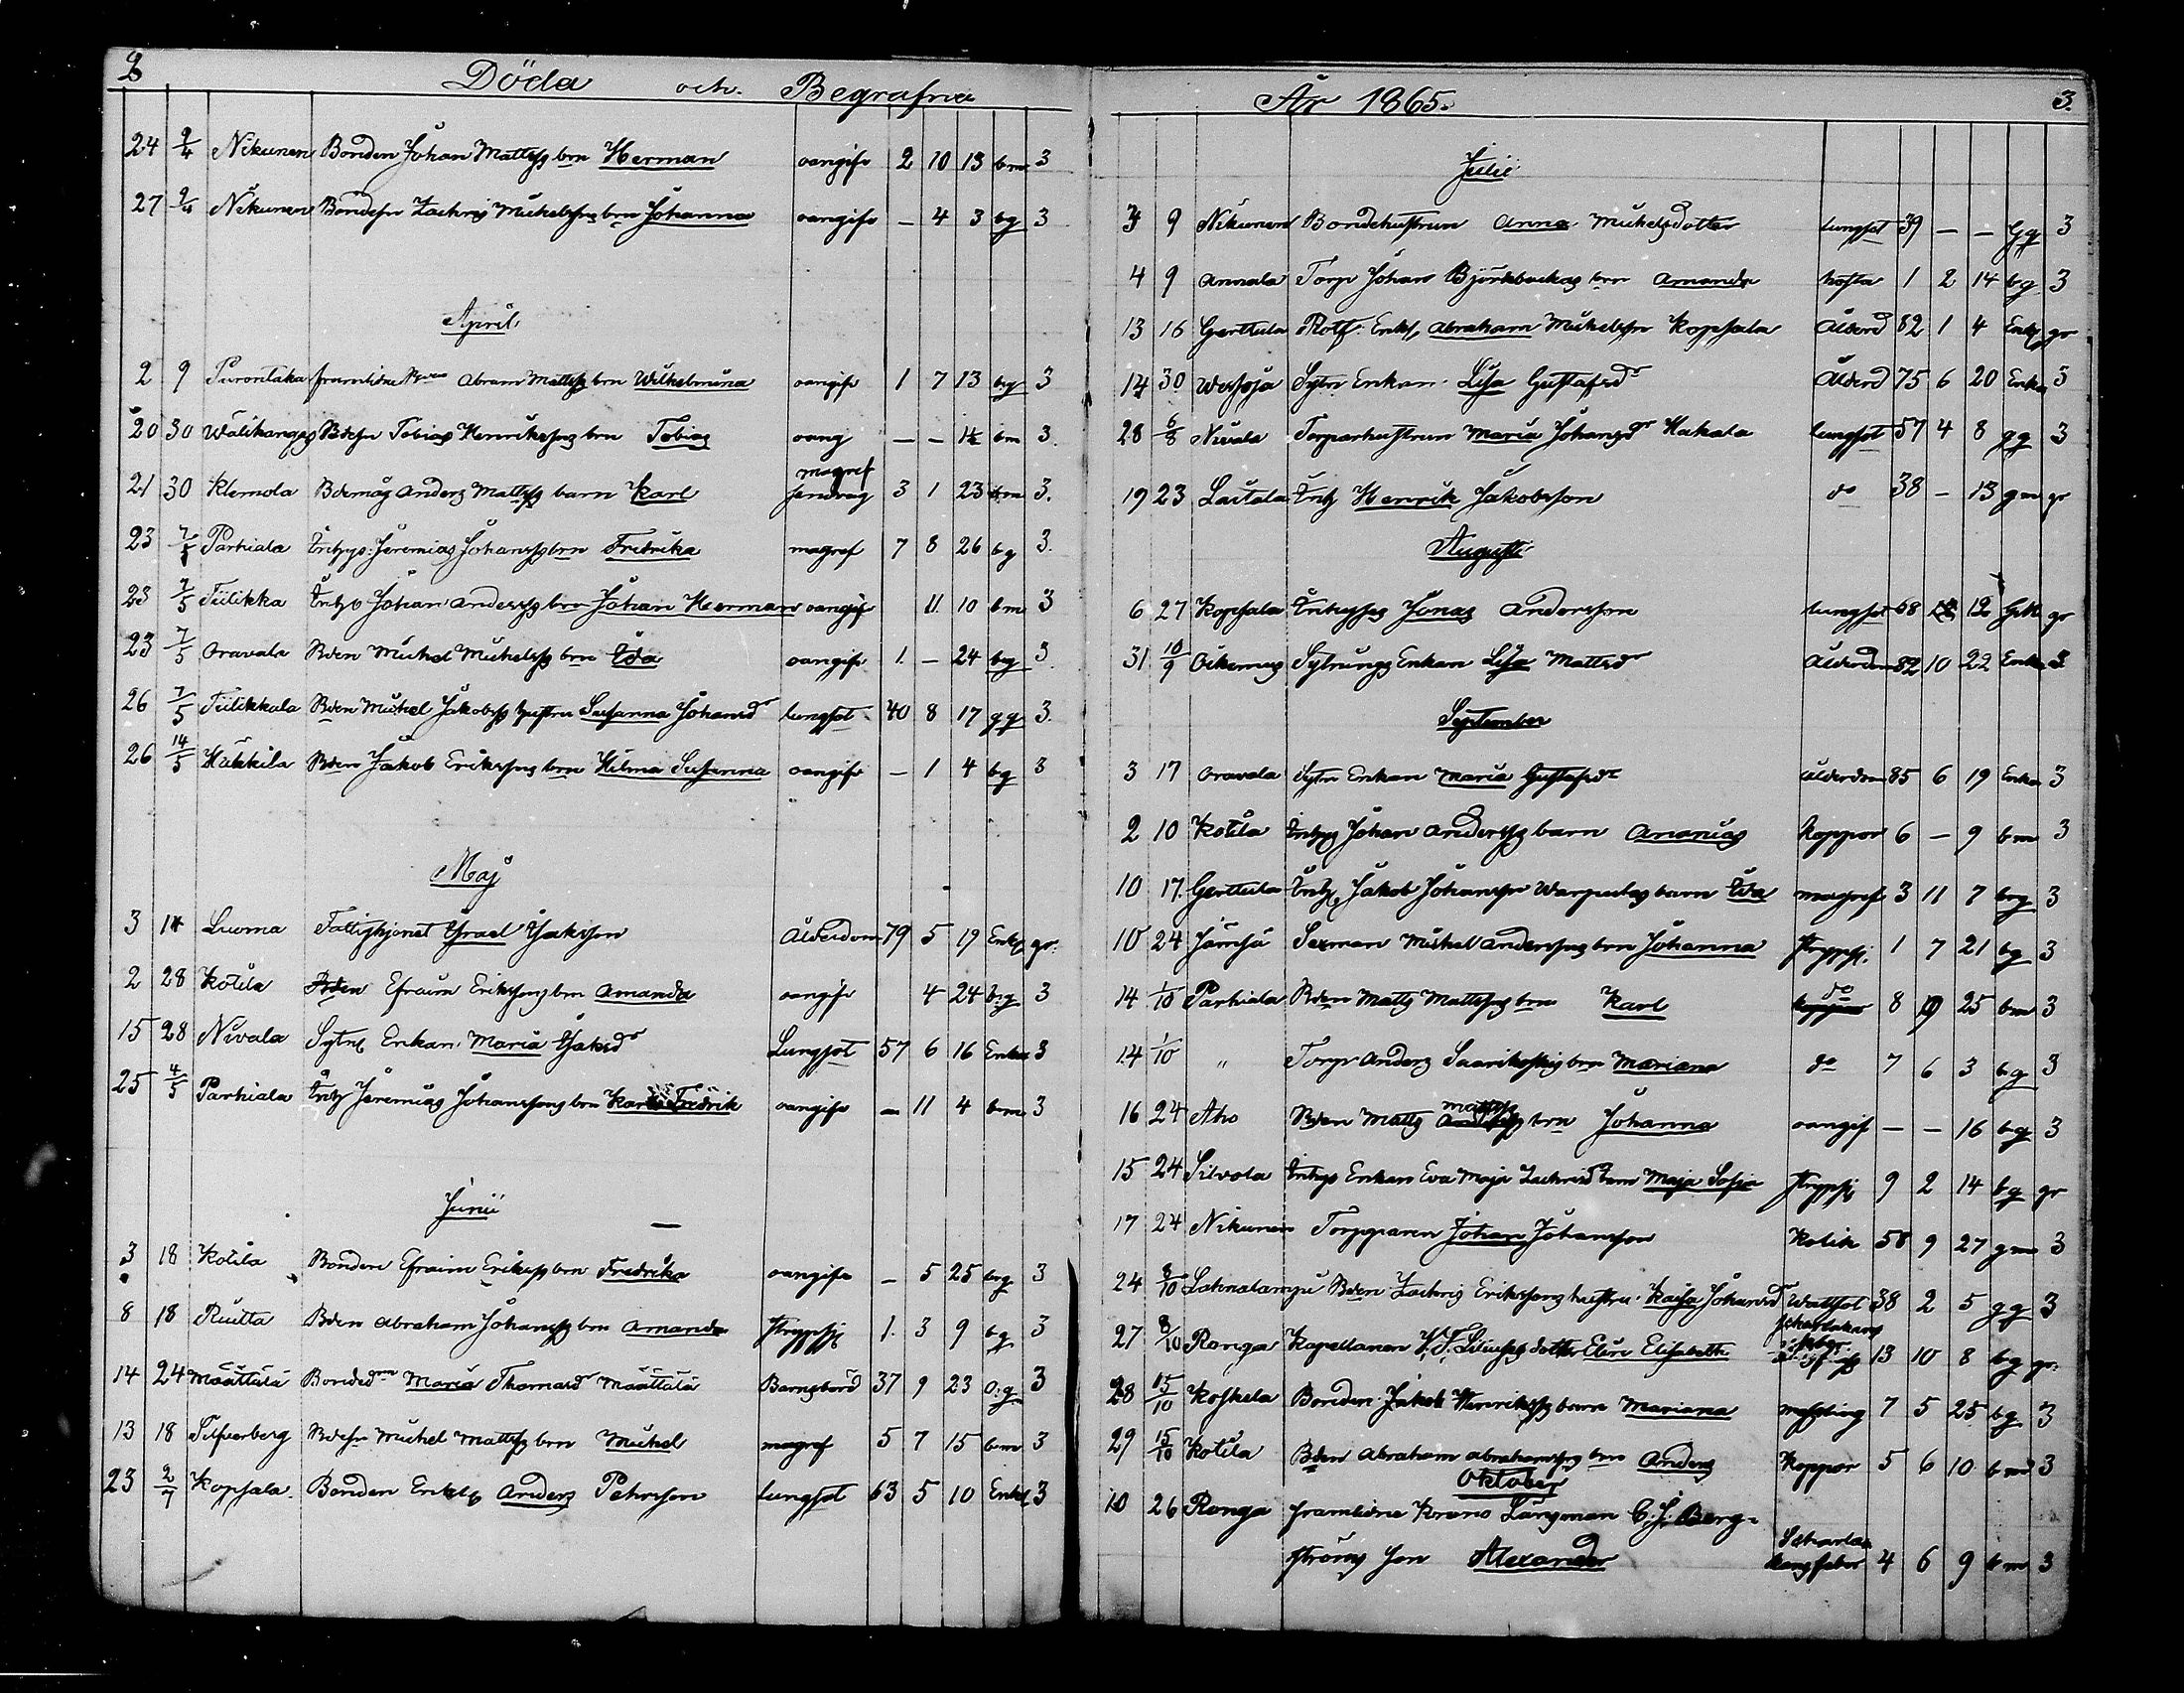 2 Döda och Begrafna
24 2/4 Nikunen Bonden Johan Mattss brn Herman oangifv 2 10 13 bm 3
27 9/4 Nikunen Bondesn Zachris Michelssns brn Johanna oangifv – 4 3 bg 3
April
2 9 Purontaka framlidne Abram Mattss brn Wilhelmina oangifv 1 7 13 bg 3
20 30 Wälikangas Bdesn Tobias Henrikssns brn Tobias oang – – 1½ bm 3.
magref
21 30 Klemola Bdemåg Anders Mattss barn Karl 3 1 23 bm 3.
23 7/5 Parhiala Inhys: Jeremias Johanss brn Fredrika magref 7 8 26 bg 3.
23 7/5 Tiilikka Inhys Johan Anderss brn Johan Herman oangifv 11 10 bm 3
23 7/5 Oravala Bden Michel Michelss brn Ida oangifv 1. – 24 bg 3.
26 7/5 Tiilikkala Bden Michel Jakobss hustru Susanna Johansdr lungsot 40 8 17 gq 3.
26 14/5 Häkkilä Bden Jakob Erikssns brn Hilma Susanna oangifv – 1 4 bg 3
Maj
3 14 Luoma Fattighjonet Israel Isaksson Ålderdom 79 5 19 Enkl gr.
2 28 Kotila Bden Efraim Erikssons brn Amanda oangifv 4 24 bg 3
15 28 Nivala Sytn Enkan Maria Isaksdr Lungsot 57 6 16 Enka 3
25 4/5 Parhiala Inhy Jeremias Johanssons brn Karl Fredrik oangifv – 11 4 bm 3
Junii
3 18 Kotila Bonden Efraim Erikss brn Fredrika oangifv – 5 25 bg 3
8 18 Ruitta Bden Abraham Johanss brn Amanda strypsj 1. 3 9 bg 3
14 24 Määttälä Bonded Maria Thomasdr Määttälä Barnsbörd 37 9 23 o.g 3
13 18 Silfverberg Bdesn Michel Mattss brn Michel magref 5 7 15 bm 3
23 2/7 Kopsala Bonden Enkl Anders Pehrsson lungsot 63 5 10 Enkl 3
År 1865. 3.
Julii
3 9 Nikunen Bondehustrun Anna Michelsdotter lungsot 39 – – Gq 3
4 9 Annala Torp Johan Björkbackas brn Amanda hosta 1 2 14 bg 3
13 16 Gerttula Enkl, Abraham Michelssn Kopsala Ålderd 82 1 4 Enkl gr
14 30 Sytn Enkan Lisa Gustafsdr Ålderd 75 6 20 Enka 3
28 6/8 Nivala Torparhustrun Maria Johansdr Hakala lungsot 57 4 8 gq 3
19 23 Laitala Inhy Henrik Jakobsson do 38 – 13 gm gr
Augusti
6 27 Kopsala Inhyses Jonas Andersson lungsot 68 12 gr
31 10/9 Oikemus Sytnings Enkan Lisa Mattsdr Ålderdom 82 10 22 Enka 3
September
3 17 Oravala Sytn Enkan Maria Gustafsdr ålderdom 85 6 19 Enka 3
2 10 Kotila Inhys Johan Anderss barn Ananias Koppor 6 – 9 bm 3
10 17. Gerttula Inhy, Jakob Johansson Warpulas barn Ida magref 3 11 7 bg 3
10 24 Jämsä Sexman Michel Anderssons brn Johanna strypsj. 1 7 21 bg 3
14 1/10 Parhiala Bden Matts Mattssns brn Karl do 8 9 25 bm 3
14 1/10 " Torp Anders Saarikoskis brn Mariana do 7 6 3 bg 3
16 24 Aho Bden Matts Mattss brn Johanna oangif – – 16 bg 3
15 24 Silvola Inhys Enkan Eva Maja Zachrisdr barn Maja Sofia strypsj 9 2 14 bg gr
17 24 Nikunen Torpparen Johan Johansson Kolik 58 9 27 gm 3
24 8/10 Lahnalampi Bden Zachris Erikssons hustru Kaisa Johansdr Wattsot 38 2 5 gg 3
27 8/10 Ronga Kapellanen dotter Elin Elisabeth scharlakansfeber 13 10 8 bg gr.
28 15/10 Koskela Bonden Jakob Henrikss barn Mariana messling 7 5 25 bg 3
29 15/10 Kotila Bden Abraham Abrahamssns brn Anders Koppor 5 6 10 bm 3
Oktober
10 26 Ronga framlidne Krono Länsman C. J. Berg-
ströms son Alexander Scharlakansfeber 4 6 9 bm 3